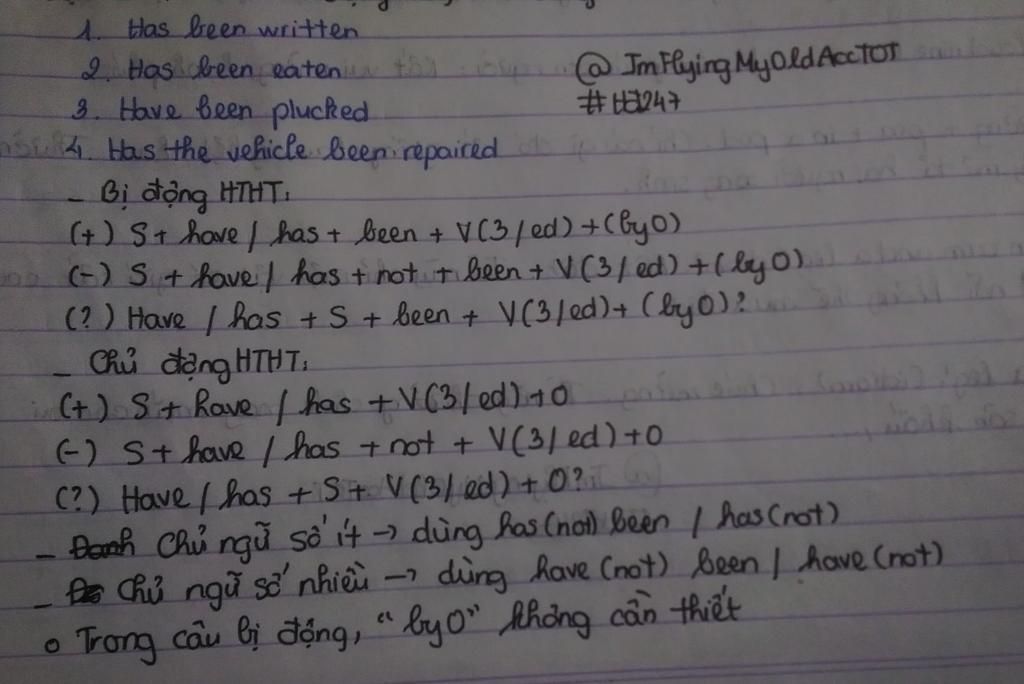 1. Has been written
2. Has been eaten
@ImFlyingMyOldAccTOT
3. Have been plucked
4. Has the vehicle been repaired
- Bị động HTHT:
(+) S + have / has + been + V(3/ed) + (by O)
(-) S + have / has + not + been + V(3/ed) + (by O)
(?) Have / has + S + been + V(3/ed) + (by O)?
- Chủ động HTHT:
(+) S + have / has + V(3/ed) + O
(-) S + have / has + not + V(3/ed) + O
(?) Have / has + S + V(3/ed) + O?
- Chủ ngữ số ít → dùng has (not) been / has (not)
- Chủ ngữ số nhiều → dùng have (not) been / have (not)
o Trong câu bị động, "by O" không cần thiết